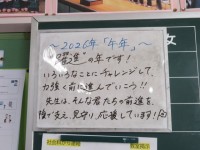 ～2026年「午年」～
"躍進"の年です!
いろいろなことにチャレンジして、
力強く前に進んでいこう!!
先生は、そんな君たちの前進を、
陰で支え、見守り応援しています!
女